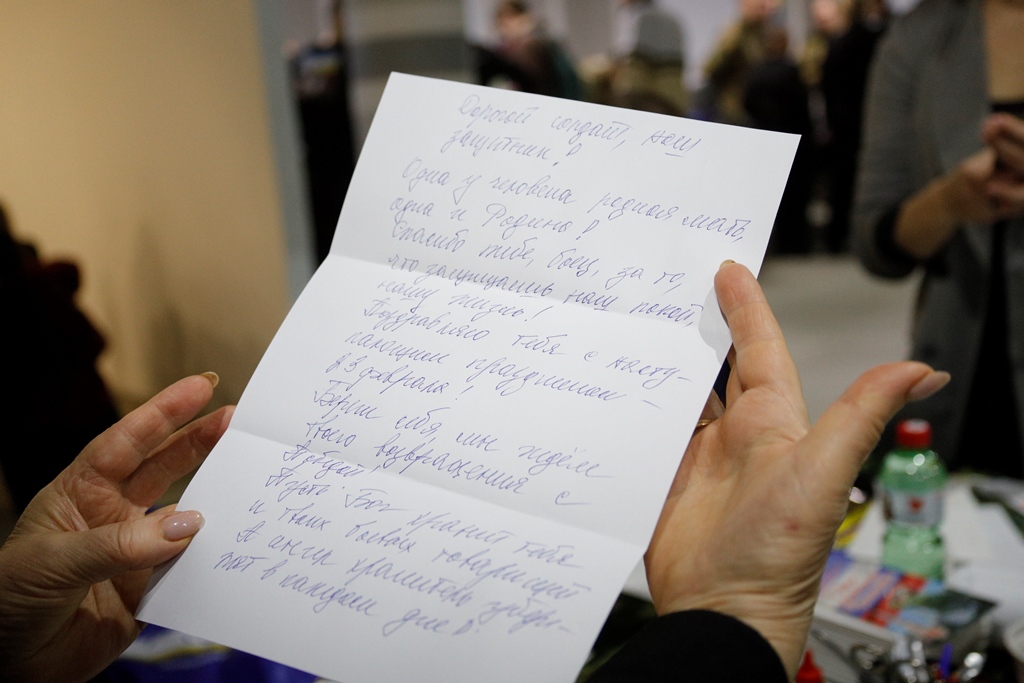 Дорогой солдат, наш
защитник!
Одна у человека родная мать,
одна и Родина!
Спасибо тебе, боец, за то,
что защищаешь наш покой,
нашу жизнь!
Поздравляю тебя с насту-
пающим праздником -
23 февраля!
Береги себя, мы ждём
твоего возвращения с
Победой!
Пусть Бог хранит тебя
и твоих боевых товарищей
А ангел хранитель убере-
жёт в каждом дне!